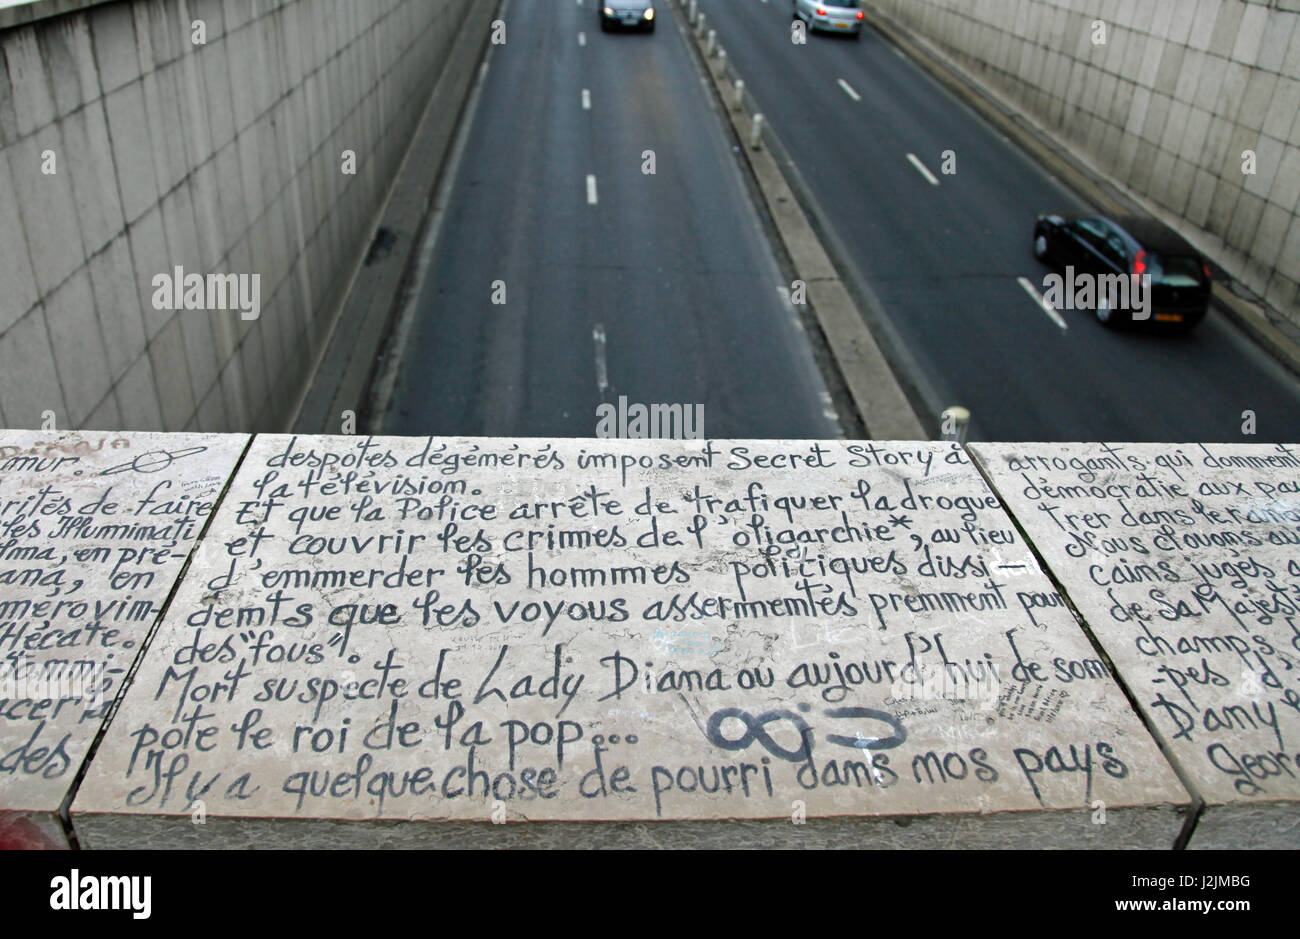 mur.
rités de faire
les Illuminati
Alma, en pré-
ana, en
mérovim-
Hécate.
tommi-
des
despotes dégémérés imposent Secret Story à
la télévision.
Et que la Police arrête de trafiquer la drogue
et couvrir les crimes de l'oligarchie*, au lieu
d'emmerder les hommes politiques dissi-
demts que les voyous assermemtés premment pour
des "fous".
Mort suspecte de Lady Diana ou aujourd'hui de som
pote le roi de la pop...
Il y a quelque chose de pourri dams mos pays
arrogants qui domment
démocratie aux pay
trer dans le
Nous clouons au
cains jugés a
de Sa Majest
champs, d
-pes d'
Dany
Geor
alamy stock photo
J2JMBG
www.alamy.com